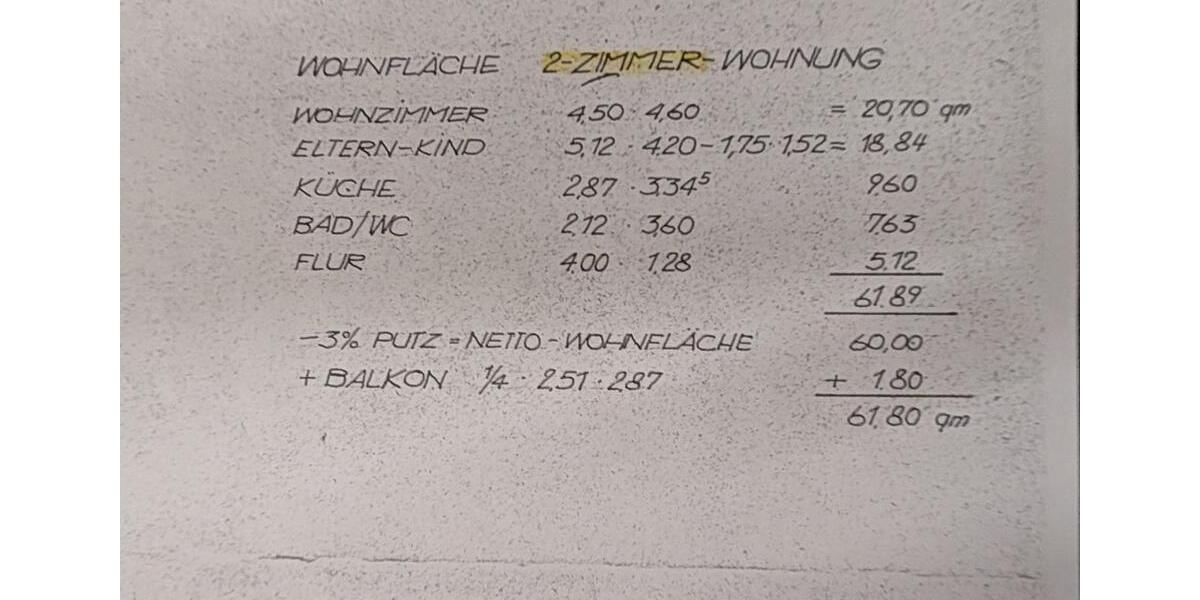 WOHNFLÄCHE 2-ZIMMER-WOHNUNG
WOHNZIMMER 4,50 · 4,60 = 20,70 qm
ELTERN-KIND 5,12 · 4,20 - 1,75 · 1,52 = 18,84
KÜCHE 2,87 · 3,34⁵ 9,60
BAD/WC 2,12 · 3,60 7,63
FLUR 4,00 · 1,28 5,12
61,89
-3% PUTZ = NETTO-WOHNFLÄCHE 60,00
+ BALKON 1/4 · 2,51 · 2,87 + 1,80
61,80 qm